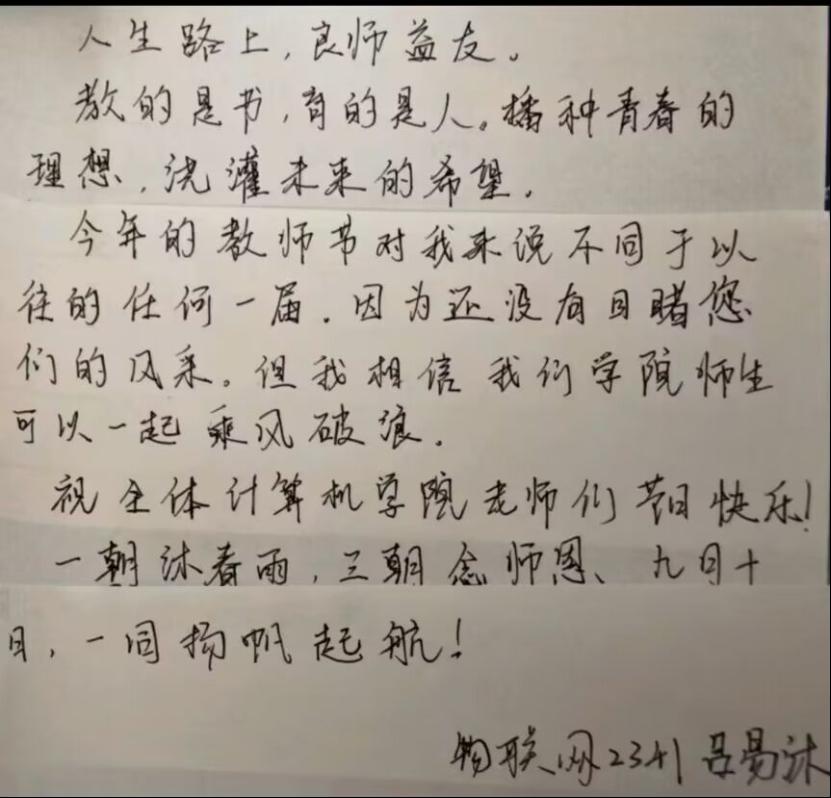 人生路上,良师益友。
教的是书,育的是人。播种青春的
理想,浇灌未来的希望。
今年的教师节对我来说不同于以
往的任何一届。因为还没有目睹您
们的风采。但我相信我们学院师生
可以一起乘风破浪。
祝全体计算机学院老师们节日快乐!
一朝沐春雨,三朝念师恩、九月十
日,一同扬帆起航!
物联网2341 吕易沐